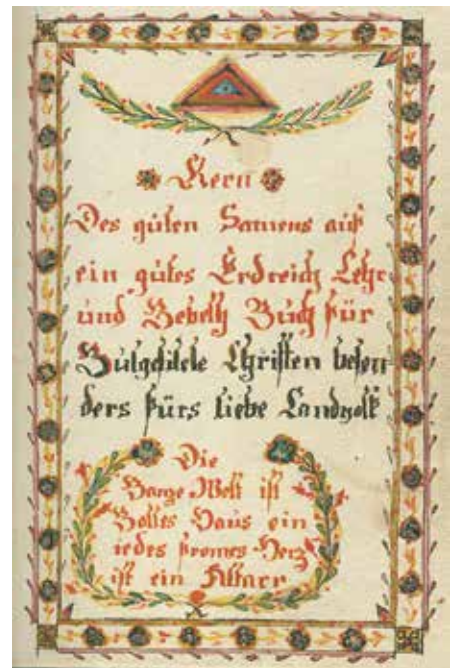 Kern
Des guten Samens auf
ein gutes Erdreich Lehr
und Bebeth Buch für
Gutgesinte Christen beson
ders fürs liebe Landvolk
Die
Ganze Welt ist
Gottes Haus ein
iedes fromes Herz
ist ein Altarr